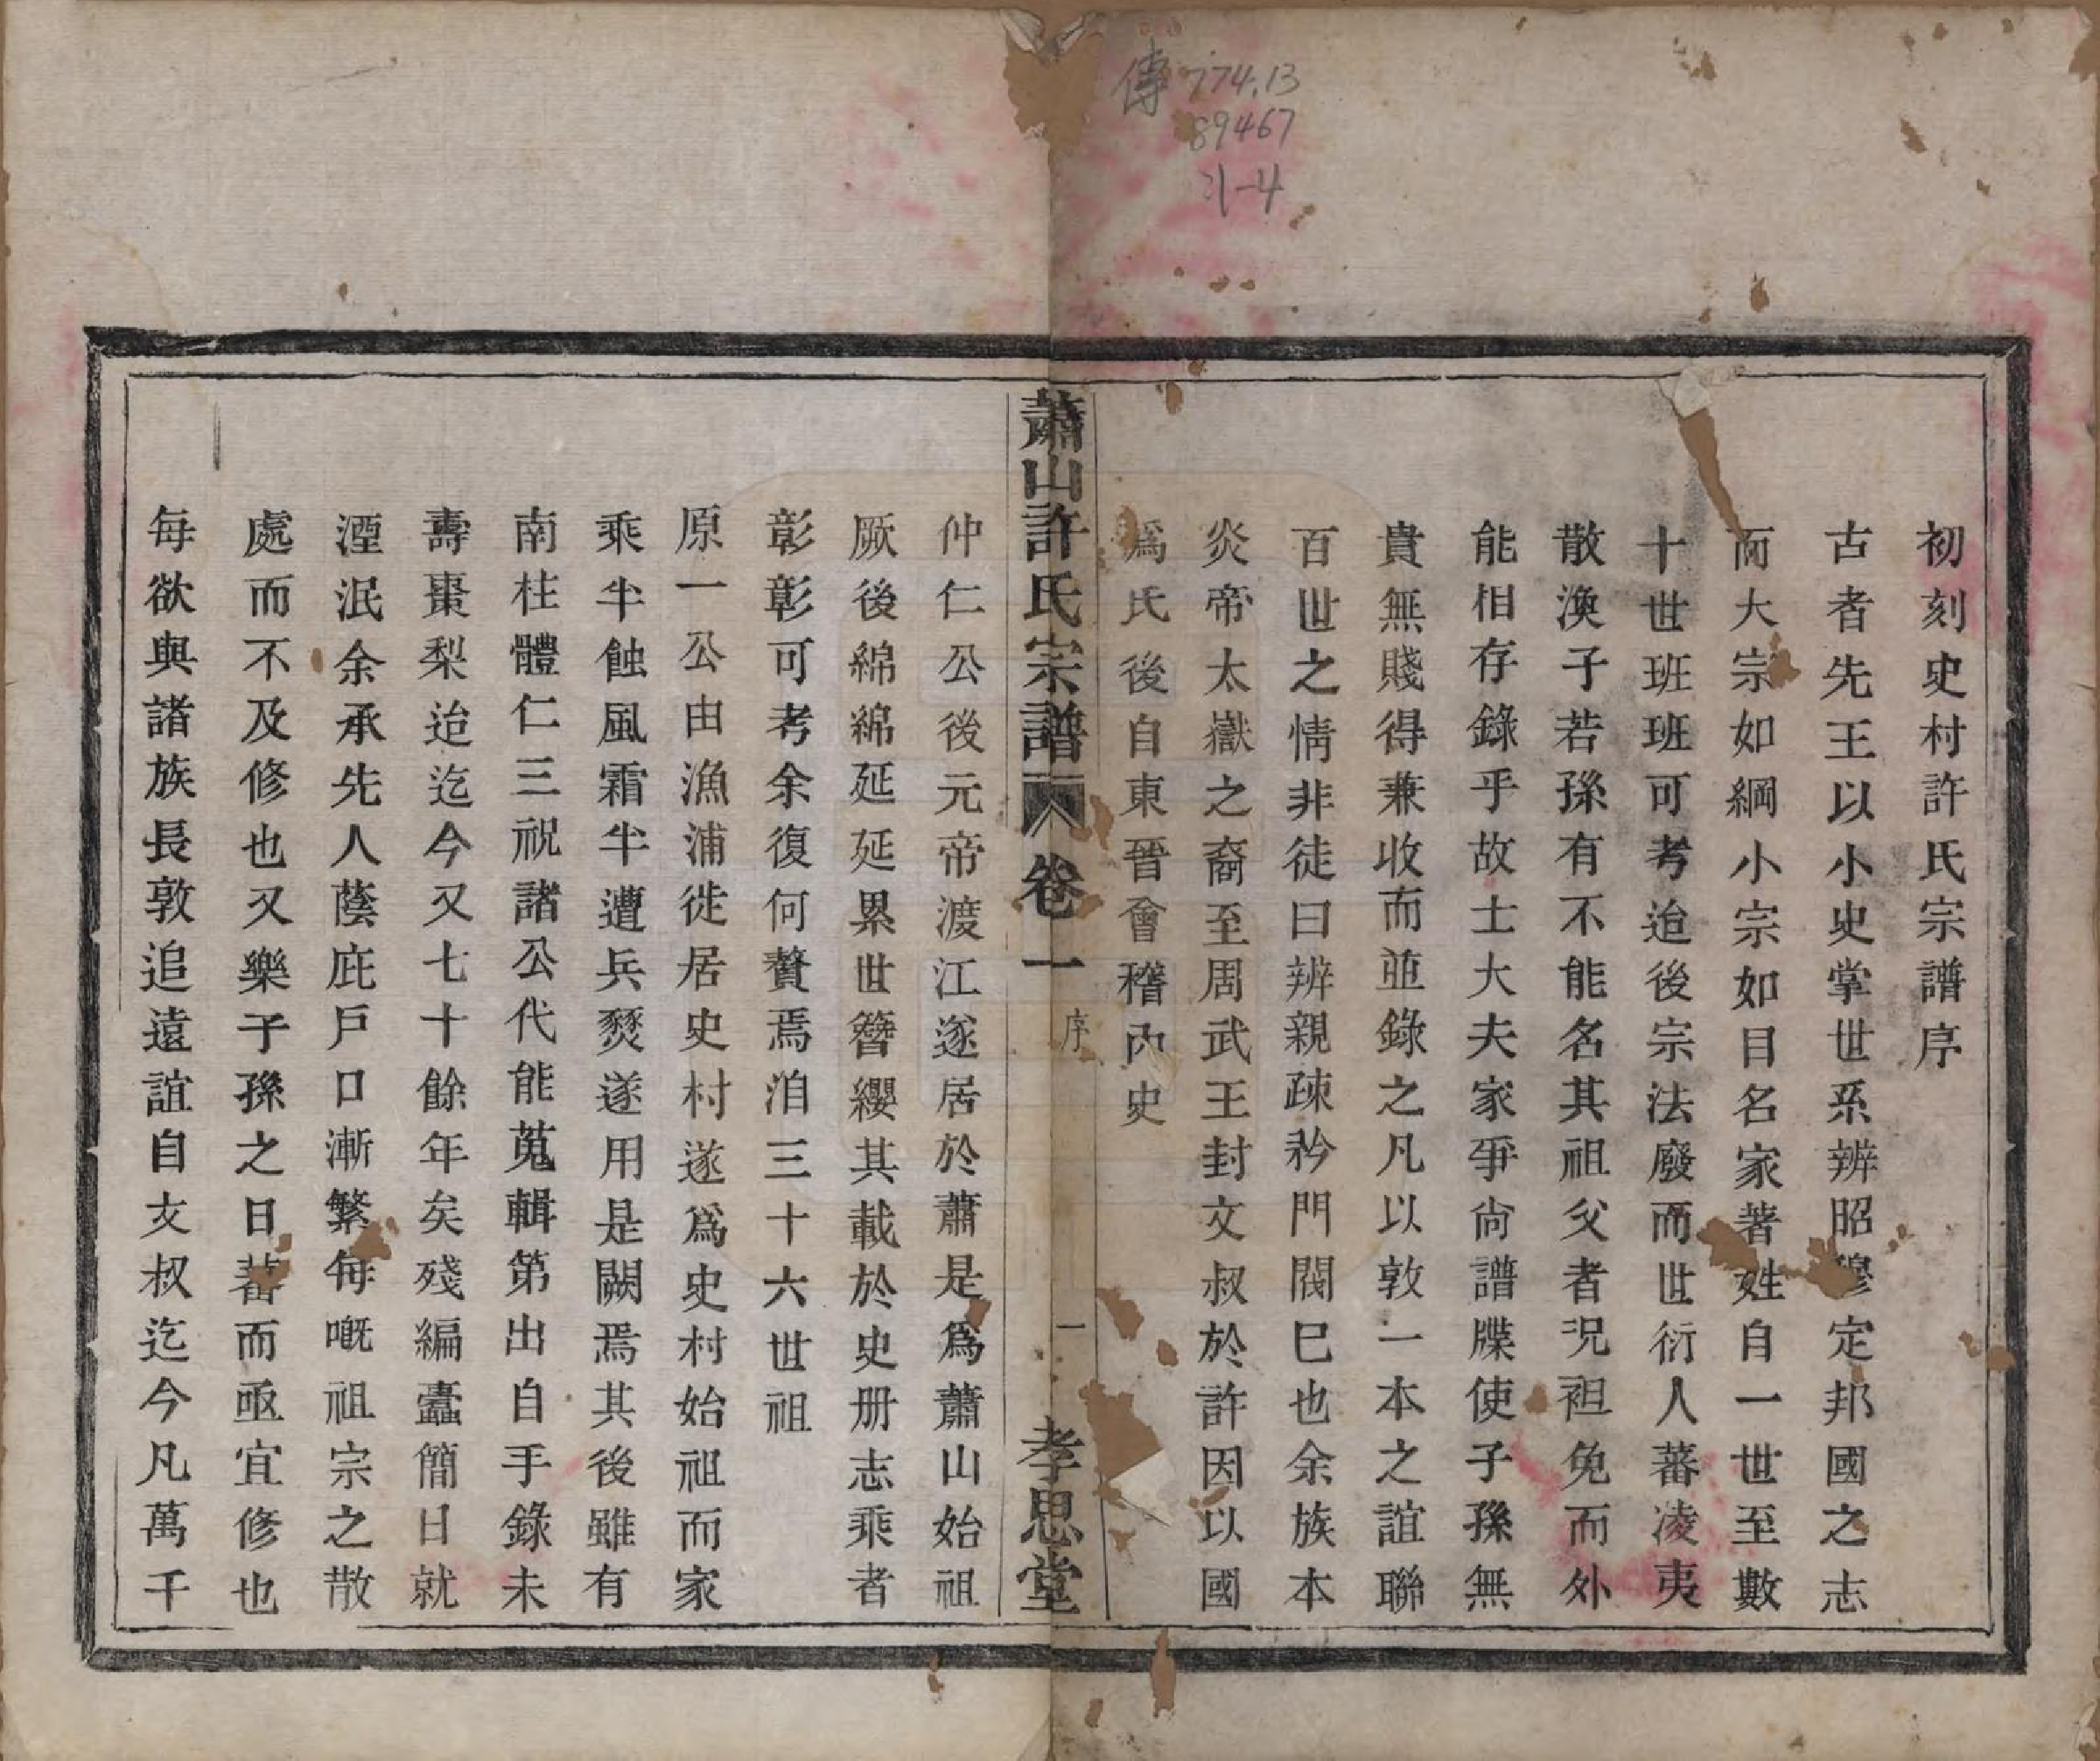 傳 774.13
89467
:1-4
初刻史村許氏宗譜序
古者先王以小史掌世系辨昭穆定邦國之志
而大宗如綱小宗如目名家著姓自一世至數
十世班班可考迨後宗法廢而世衍人蕃凌夷
散渙子若孫有不能名其祖父者況袒免而外
能相存錄乎故士大夫家爭尙譜牒使子孫無
貴無賤得兼收而並錄之凡以敦一本之誼聯
百世之情非徒曰辨親疎矜門閥巳也余族本
炎帝太嶽之裔至周武王封文叔於許因以國
爲氏後自東晉會稽內史
蕭山許氏宗譜 卷一 序 一 孝思堂
仲仁公後元帝渡江遂居於蕭是爲蕭山始祖
厥後綿綿延延累世簪纓其載於史册志乘者
彰彰可考余復何贅焉洎三十六世祖
原一公由漁浦徙居史村遂爲史村始祖而家
乘半蝕風霜半遭兵燹遂用是闕焉其後雖有
南柱體仁三祝諸公代能蒐輯第出自手錄未
壽棗梨迨迄今又七十餘年矣殘編蠹簡日就
湮泯余承先人蔭庇戶口漸繁每嘅祖宗之散
處而不及修也又樂子孫之日蕃而亟宜修也
每欲與諸族長敦追遠誼自文叔迄今凡萬千